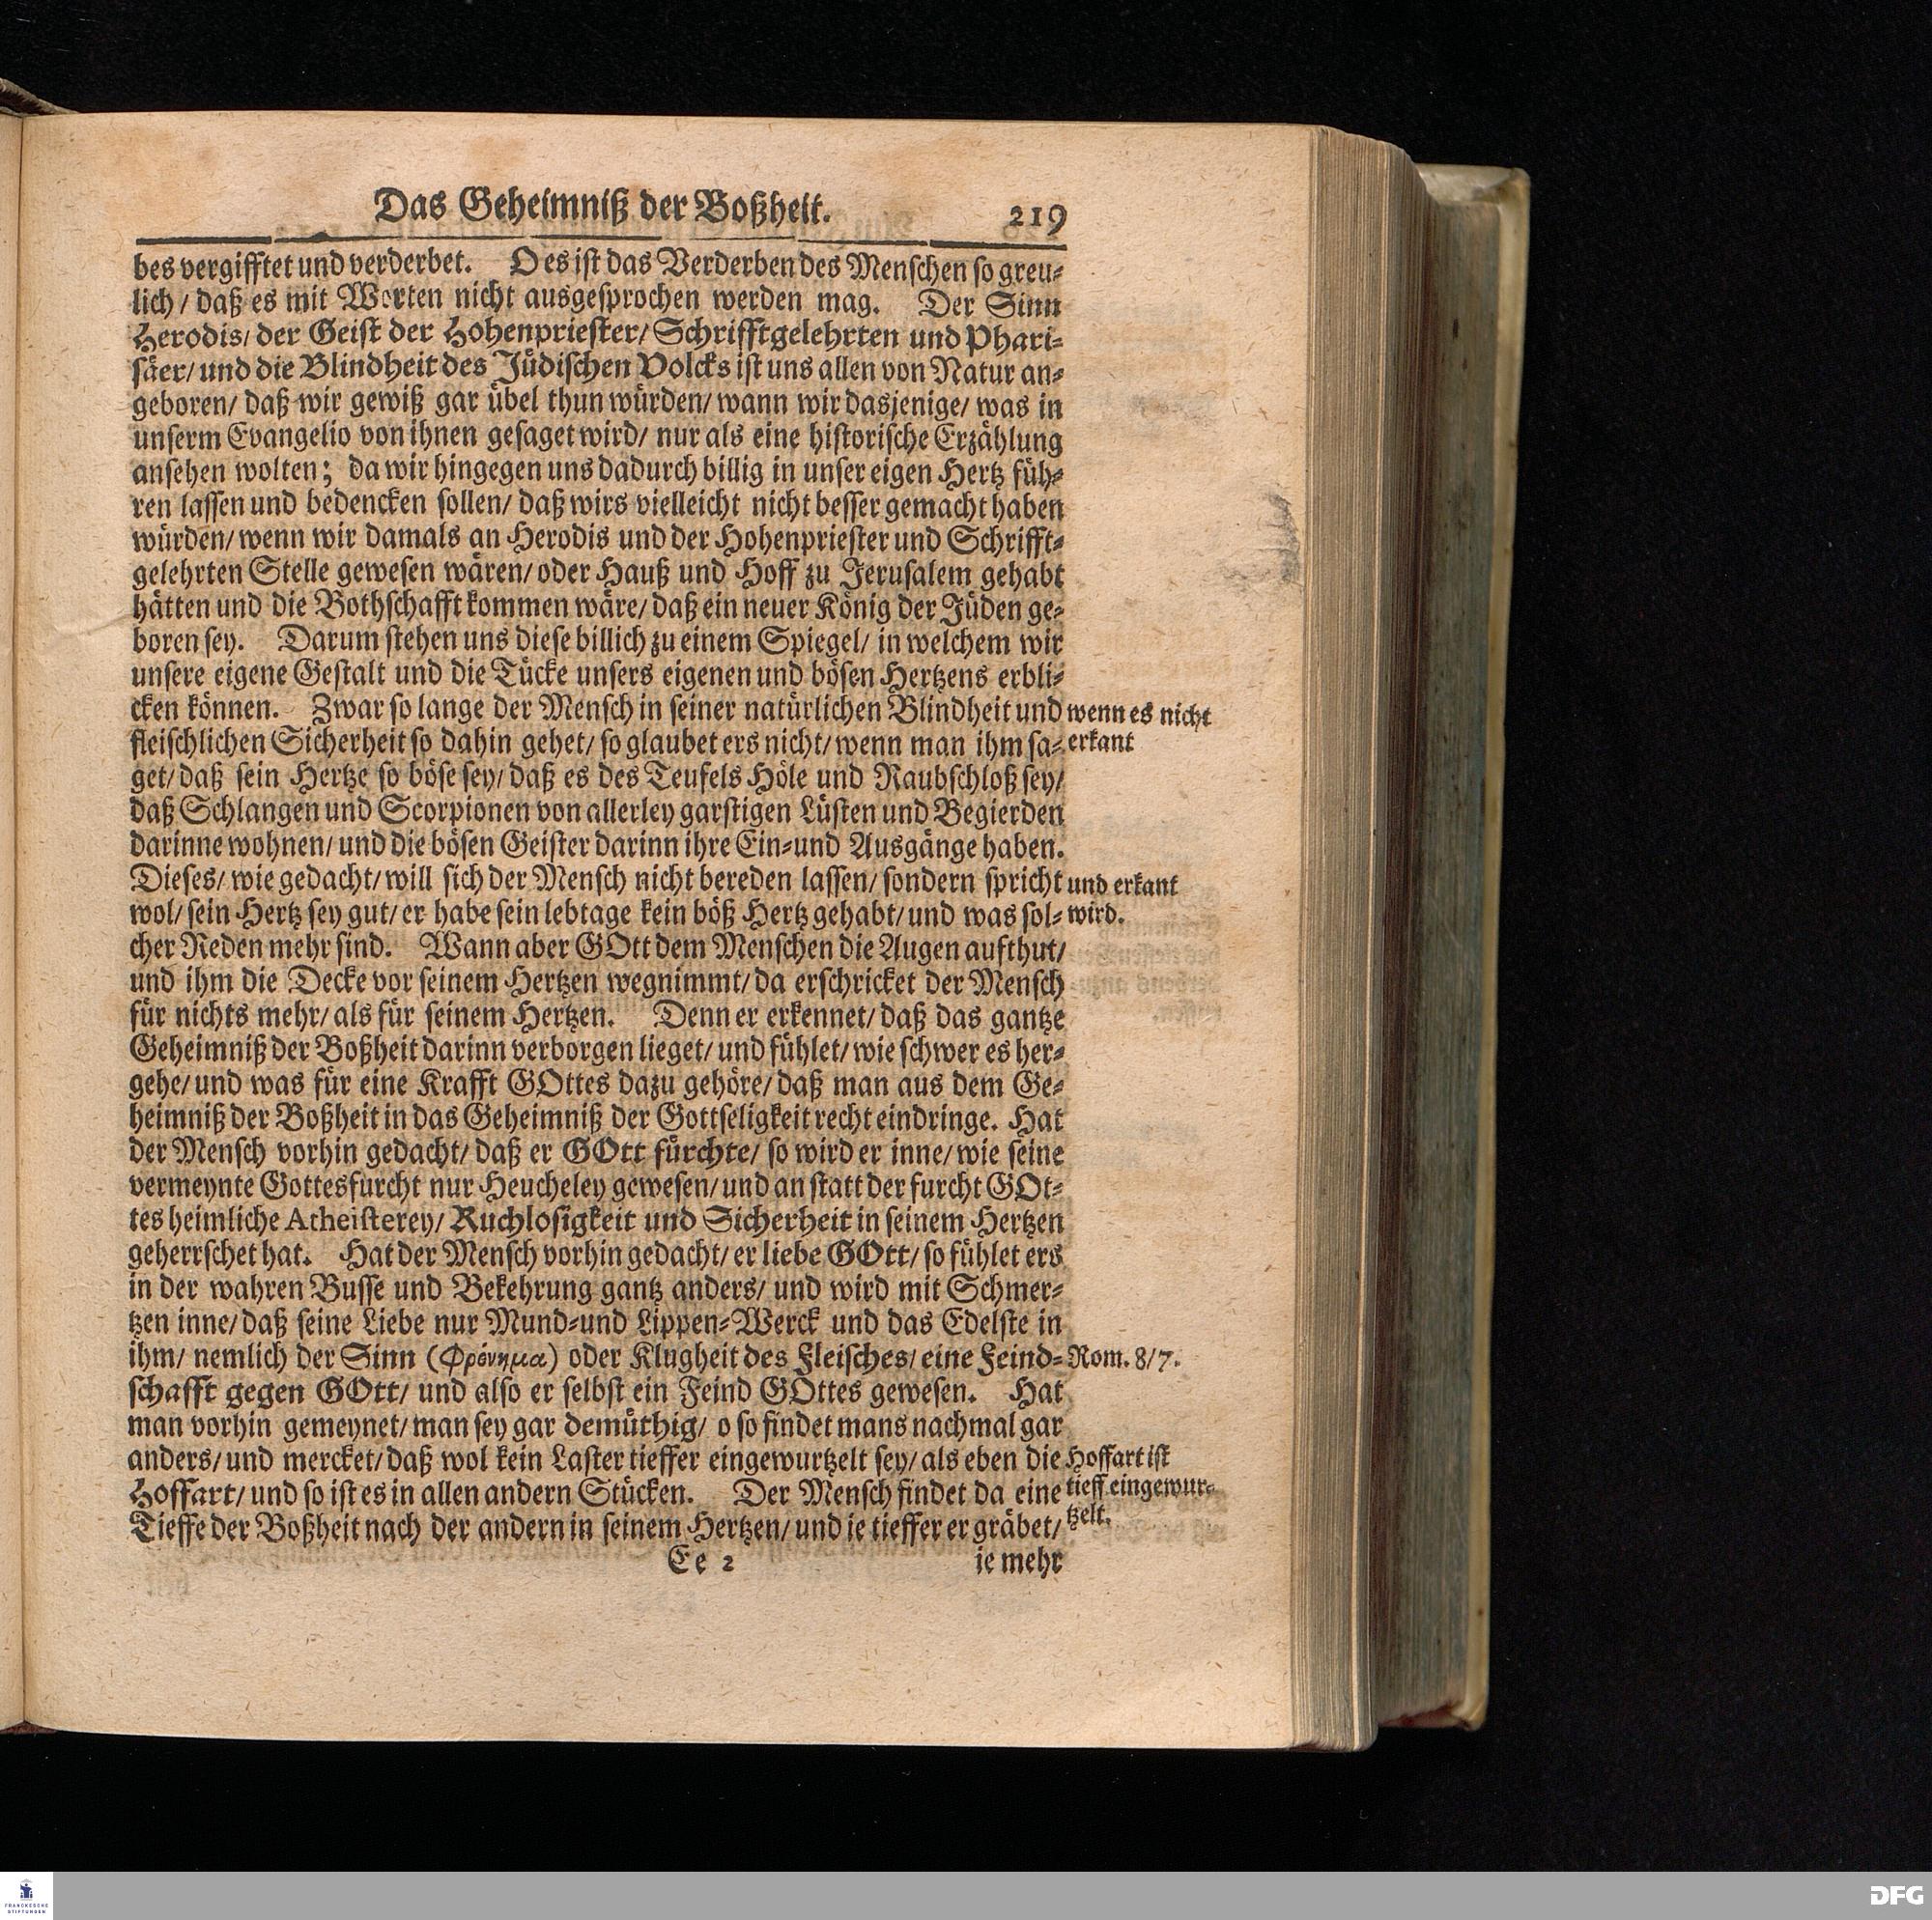 Das Geheimniß der Boßheit. 219
bes vergifftet und verderbet. O es ist das Verderben des Menschen so greu-
lich / daß es mit Worten nicht ausgesprochen werden mag. Der Sinn
Herodis / der Geist der Hohenpriester / Schrifftgelehrten und Phari-
säer / und die Blindheit des Jüdischen Volcks ist uns allen von Natur an-
geboren / daß wir gewiß gar übel thun würden / wann wir dasjenige / was in
unserm Evangelio von ihnen gesaget wird / nur als eine historische Erzählung
ansehen wolten; da wir hingegen uns dadurch billig in unser eigen Hertz füh-
ren lassen und bedencken sollen / daß wirs vielleicht nicht besser gemacht haben
würden / wenn wir damals an Herodis und der Hohenpriester und Schrifft-
gelehrten Stelle gewesen wären / oder Hauß und Hoff zu Jerusalem gehabt
hätten und die Bothschafft kommen wäre / daß ein neuer König der Jüden ge-
boren sey. Darum stehen uns diese billich zu einem Spiegel / in welchem wir
unsere eigene Gestalt und die Tücke unsers eigenen und bösen Hertzens erbli-
cken können. Zwar so lange der Mensch in seiner natürlichen Blindheit und
wenn es nicht
fleischlichen Sicherheit so dahin gehet / so glaubet ers nicht / wenn man ihm sa-
erkant
get / daß sein Hertze so böse sey / daß es des Teufels Höle und Raubschloß sey /
daß Schlangen und Scorpionen von allerley garstigen Lüsten und Begierden
darinne wohnen / und die bösen Geister darinn ihre Ein-und Ausgänge haben.
Dieses / wie gedacht / will sich der Mensch nicht bereden lassen / sondern spricht
und erkant
wol / sein Hertz sey gut / er habe sein lebtage kein böß Hertz gehabt / und was sol-
wird.
cher Reden mehr sind. Wann aber GOtt dem Menschen die Augen aufthut /
und ihm die Decke vor seinem Hertzen wegnimmt / da erschricket der Mensch
für nichts mehr / als für seinem Hertzen. Denn er erkennet / daß das gantze
Geheimniß der Boßheit darinn verborgen lieget / und fühlet / wie schwer es her-
gehe / und was für eine Krafft GOttes dazu gehöre / daß man aus dem Ge-
heimniß der Boßheit in das Geheimniß der Gottseligkeit recht eindringe. Hat
der Mensch vorhin gedacht / daß er GOtt fürchte / so wird er inne / wie seine
vermeynte Gottesfurcht nur Heucheley gewesen / und an statt der furcht GOt-
tes heimliche Atheisterey / Ruchlosigkeit und Sicherheit in seinem Hertzen
geherrschet hat. Hat der Mensch vorhin gedacht / er liebe GOtt / so fühlet ers
in der wahren Busse und Bekehrung gantz anders / und wird mit Schmer-
tzen inne / daß seine Liebe nur Mund-und Lippen-Werck und das Edelste in
ihm / nemlich der Sinn (Φρόνημα) oder Klugheit des Fleisches / eine Feind-
Rom. 8/7.
schafft gegen GOtt / und also er selbst ein Feind GOttes gewesen. Hat
man vorhin gemeynet / man sey gar demüthig / o so findet mans nachmal gar
anders / und mercket / daß wol kein Laster tieffer eingewurtzelt sey / als eben die
Hoffart ist
Hoffart / und so ist es in allen andern Stücken. Der Mensch findet da eine
tieff eingewur-
Tieffe der Boßheit nach der andern in seinem Hertzen / und ie tieffer er gräbet /
tzelt.
Ee 2 ie mehr
FRANCKESCHE
STIFTUNGEN
DFG